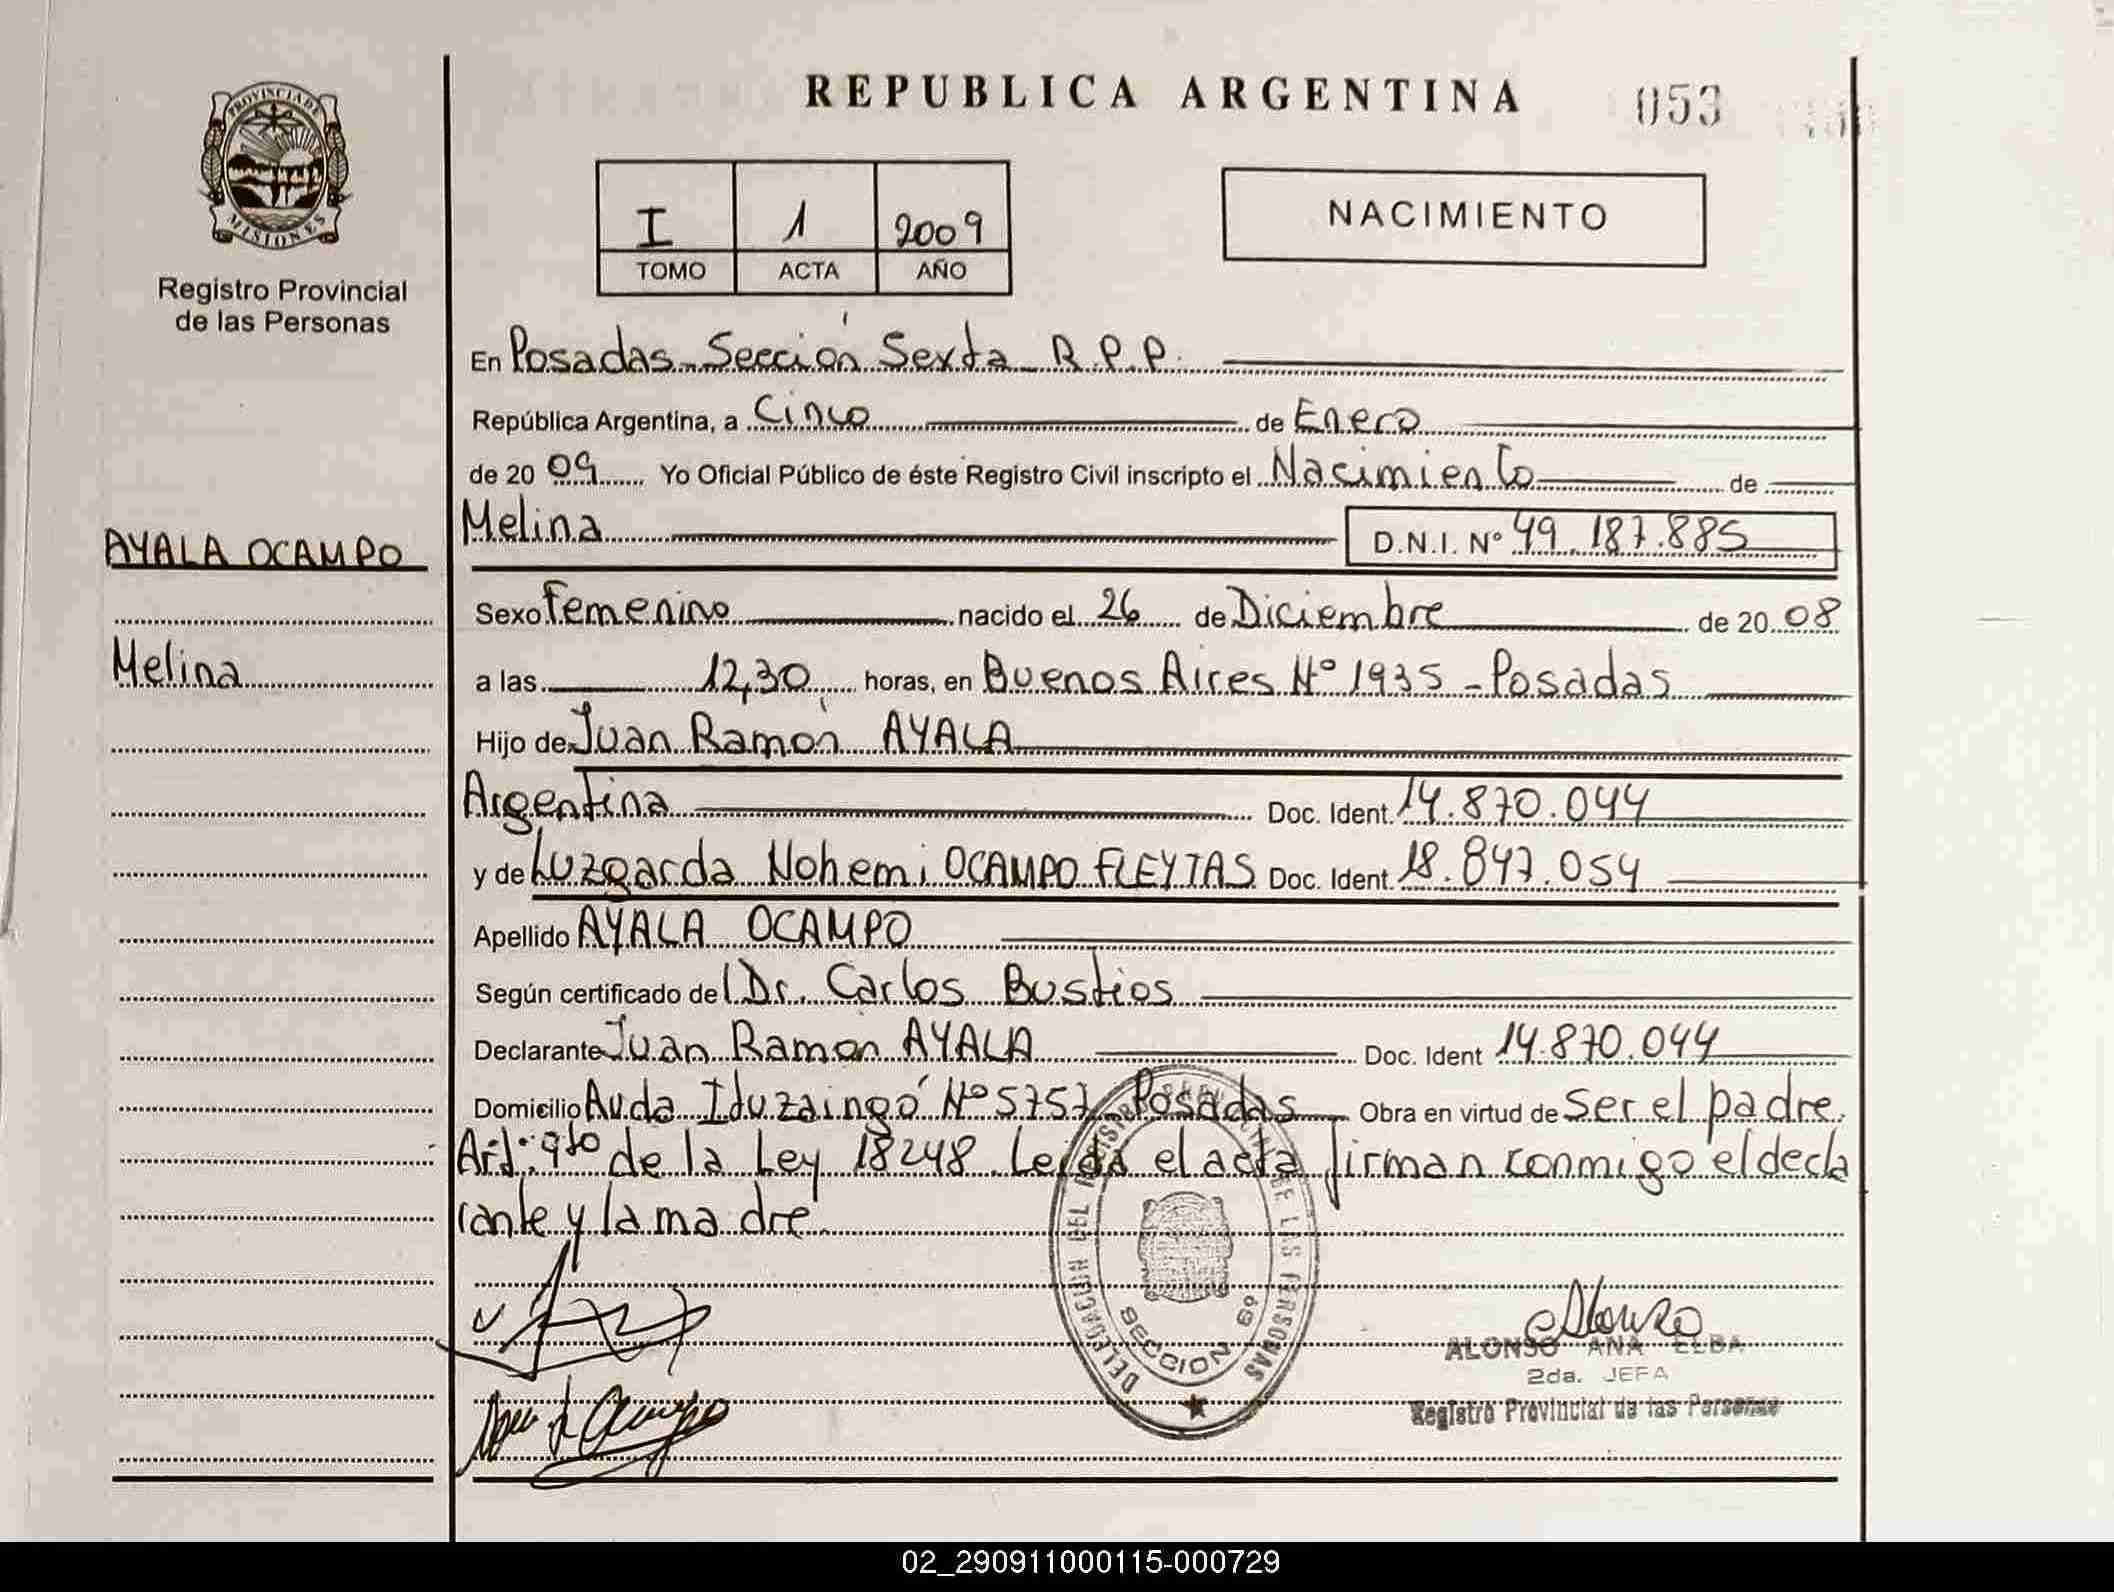 REPUBLICA ARGENTINA
053
PROVINCIA DE
MISIONES
Registro Provincial
de las Personas
I 1 2009
TOMO ACTA AÑO
NACIMIENTO
En Posadas Sección Sexta R.P.P.
República Argentina, a Cinco de Enero
de 20 09 Yo Oficial Público de éste Registro Civil inscripto el Nacimiento de
AYALA OCAMPO
Melina D.N.I. Nº 49.187.885
Sexo Femenino nacido el 26 de Diciembre de 20 08
Melina
a las 12,30 horas, en Buenos Aires Nº 1935 - Posadas
Hijo de Juan Ramón AYALA
Argentina Doc. Ident. 14.870.044
y de Luzgarda Nohemi OCAMPO FLEYTAS Doc. Ident. 18.847.054
Apellido AYALA OCAMPO
Según certificado del Dr. Carlos Bustios
Declarante Juan Ramón AYALA Doc. Ident 14.870.044
Domicilio Avda Ituzaingó Nº 5757 Posadas Obra en virtud de Ser el padre.
Art: 9to de la Ley 18248. Leida el acta firman conmigo el decla
rante y la madre
DELEGACION DEL REGISTRO PROVINCIAL DE LAS PERSONAS
SECCION 6º
ALONSO ANA ELBA
2da. JEFA
Registro Provincial de las Personas
02_290911000115-000729